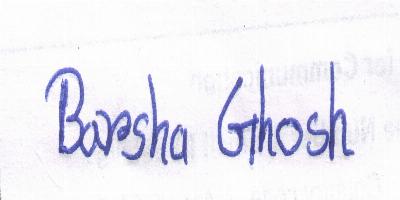 Barsha Ghosh